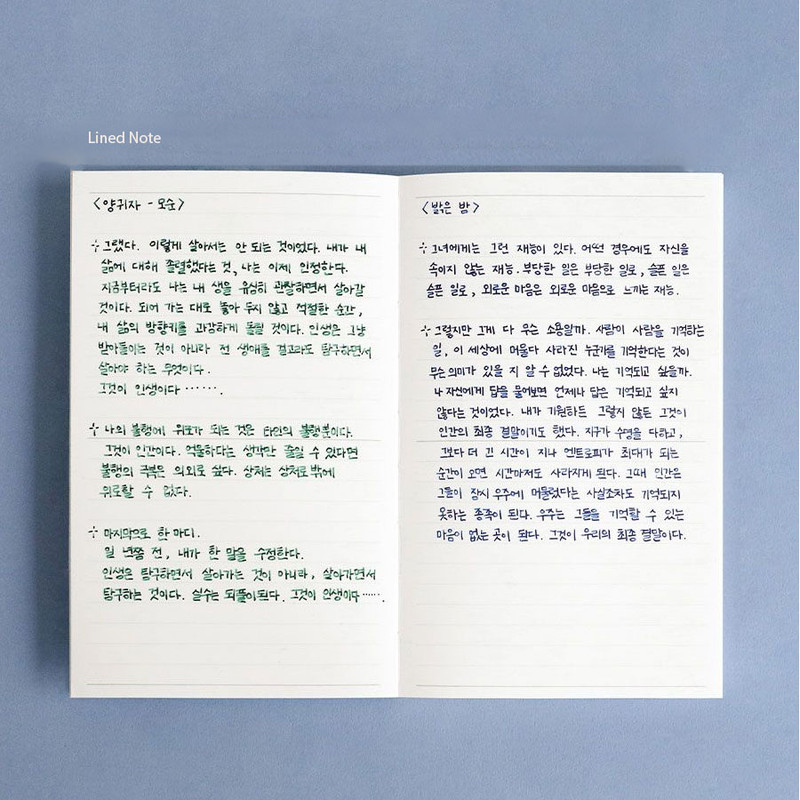 Lined Note
<양귀자 - 모순>
⊹ 그랬다. 이렇게 살아서는 안 되는 것이었다. 내가 내
삶에 대해 졸렬했다는 것, 나는 이제 인정한다.
지금부터라도 나는 내 생을 유심히 관찰하면서 살아갈
것이다. 되어 가는 대로 놓아 두지 않고 적절한 순간,
내 삶의 방향키를 과감하게 돌릴 것이다. 인생은 그냥
받아들이는 것이 아니라 전 생애를 걸고라도 탐구하면서
살아야 하는 무엇이다.
그것이 인생이다 ……
⊹ 나의 불행에 위로가 되는 것은 타인의 불행뿐이다.
그것이 인간이다. 억울하다는 생각만 줄일 수 있다면
불행의 극복은 의외로 쉽다. 상처는 상처로 밖에
위로할 수 없다.
⊹ 마지막으로 한 마디.
일 년쯤 전, 내가 한 말을 수정한다.
인생은 탐구하면서 살아가는 것이 아니라, 살아가면서
탐구하는 것이다. 실수는 되풀이된다. 그것이 인생이다 …….
<밝은 밤>
⊹ 그녀에게는 그런 재능이 있다. 어떤 경우에도 자신을
속이지 않는 재능. 부당한 일은 부당한 일로, 슬픈 일은
슬픈 일로, 외로운 마음은 외로운 마음으로 느끼는 재능.
⊹ 그렇지만 그게 다 무슨 소용일까. 사람이 사람을 기억하는
일, 이 세상에 머물다 사라진 누군가를 기억한다는 것이
무슨 의미가 있을 지 알 수 없었다. 나는 기억되고 싶을까.
나 자신에게 답을 물어보면 언제나 답은 기억되고 싶지
않다는 것이었다. 내가 기원하든 그렇지 않든 그것이
인간의 최종 결말이기도 했다. 지구가 수명을 다하고,
그보다 더 긴 시간이 지나 엔트로피가 최대가 되는
순간이 오면 시간마저도 사라지게 된다. 그때 인간은
그들이 잠시 우주에 머물렀다는 사실조차도 기억되지
못하는 종족이 된다. 우주는 그들을 기억할 수 있는
마음이 없는 곳이 된다. 그것이 우리의 최종 결말이다.